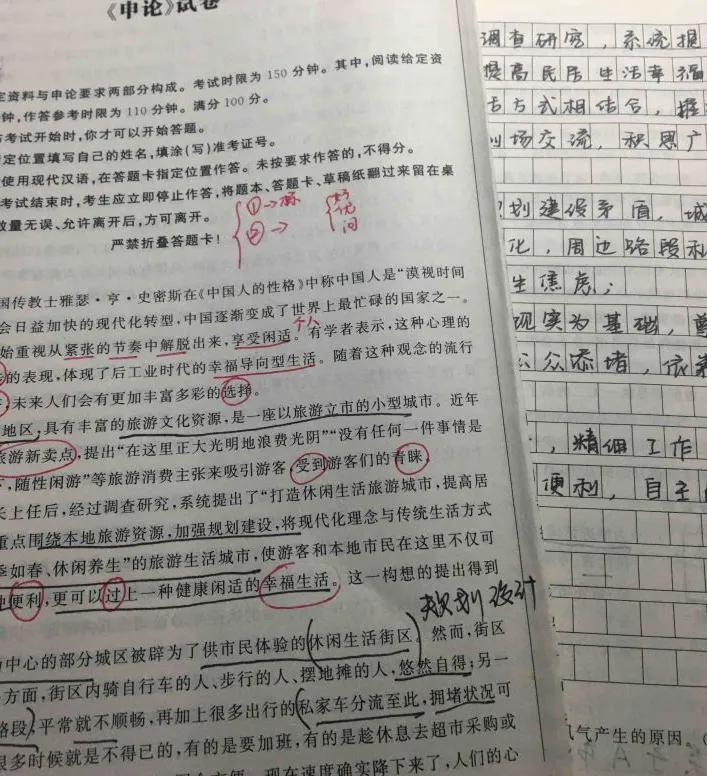 《申论》试卷
定资料与申论要求两部分构成。考试时限为 150 分钟。其中,阅读给定资
钟,作答参考时限为 110 分钟。满分 100 分。
考试开始时,你才可以开始答题。
定位置填写自己的姓名,填涂(写)准考证号。
使用现代汉语,在答题卡指定位置作答。未按要求作答的,不得分。
考试结束时,考生应立即停止作答,将题本、答题卡、草稿纸翻过来留在桌
数量无误、允许离开后,方可离开。
严禁折叠答题卡!
①→
②→
国传教士雅瑟·亨·史密斯在《中国人的性格》中称中国人是“漠视时间
会日益加快的现代化转型,中国逐渐变成了世界上最忙碌的国家之一。
个人
始重视从紧张的节奏中解脱出来,享受闲适。有学者表示,这种心理的
的表现,体现了后工业时代的幸福导向型生活。随着这种观念的流行
,未来人们会有更加丰富多彩的选择。
地区,具有丰富的旅游文化资源,是一座以旅游立市的小型城市。近年
旅游新卖点,提出“在这里正大光明地浪费光阴”“没有任何一件事情是
,随性闲游”等旅游消费主张来吸引游客,受到游客们的青睐
长上任后,经过调查研究,系统提出了“打造休闲生活旅游城市,提高居
重点围绕本地旅游资源,加强规划建设,将现代化理念与传统生活方式
季如春、休闲养生”的旅游生活城市,使游客和本地市民在这里不仅可
便利,更可以过上一种健康闲适的幸福生活。这一构想的提出得到
规划设计
中心的部分城区被辟为了供市民体验的休闲生活街区。然而,街区
方面,街区内骑自行车的人、步行的人、摆地摊的人,悠然自得;另一
路段,平常就不顺畅,再加上很多出行的私家车分流至此,拥堵状况可
很多时候就是不得已的,有的是要加班,有的是趁休息去超市采购或
现在速度确实降下来了,人们的心
调查研究,系统提
提高民居生活幸福
方式相结合,
场交流,积思广
划建设矛盾,城
化,周边路段私
生焦虑;
现实为基础,尊
公众添堵,依靠
,精细工作
便利,自主
气产生的原因。(